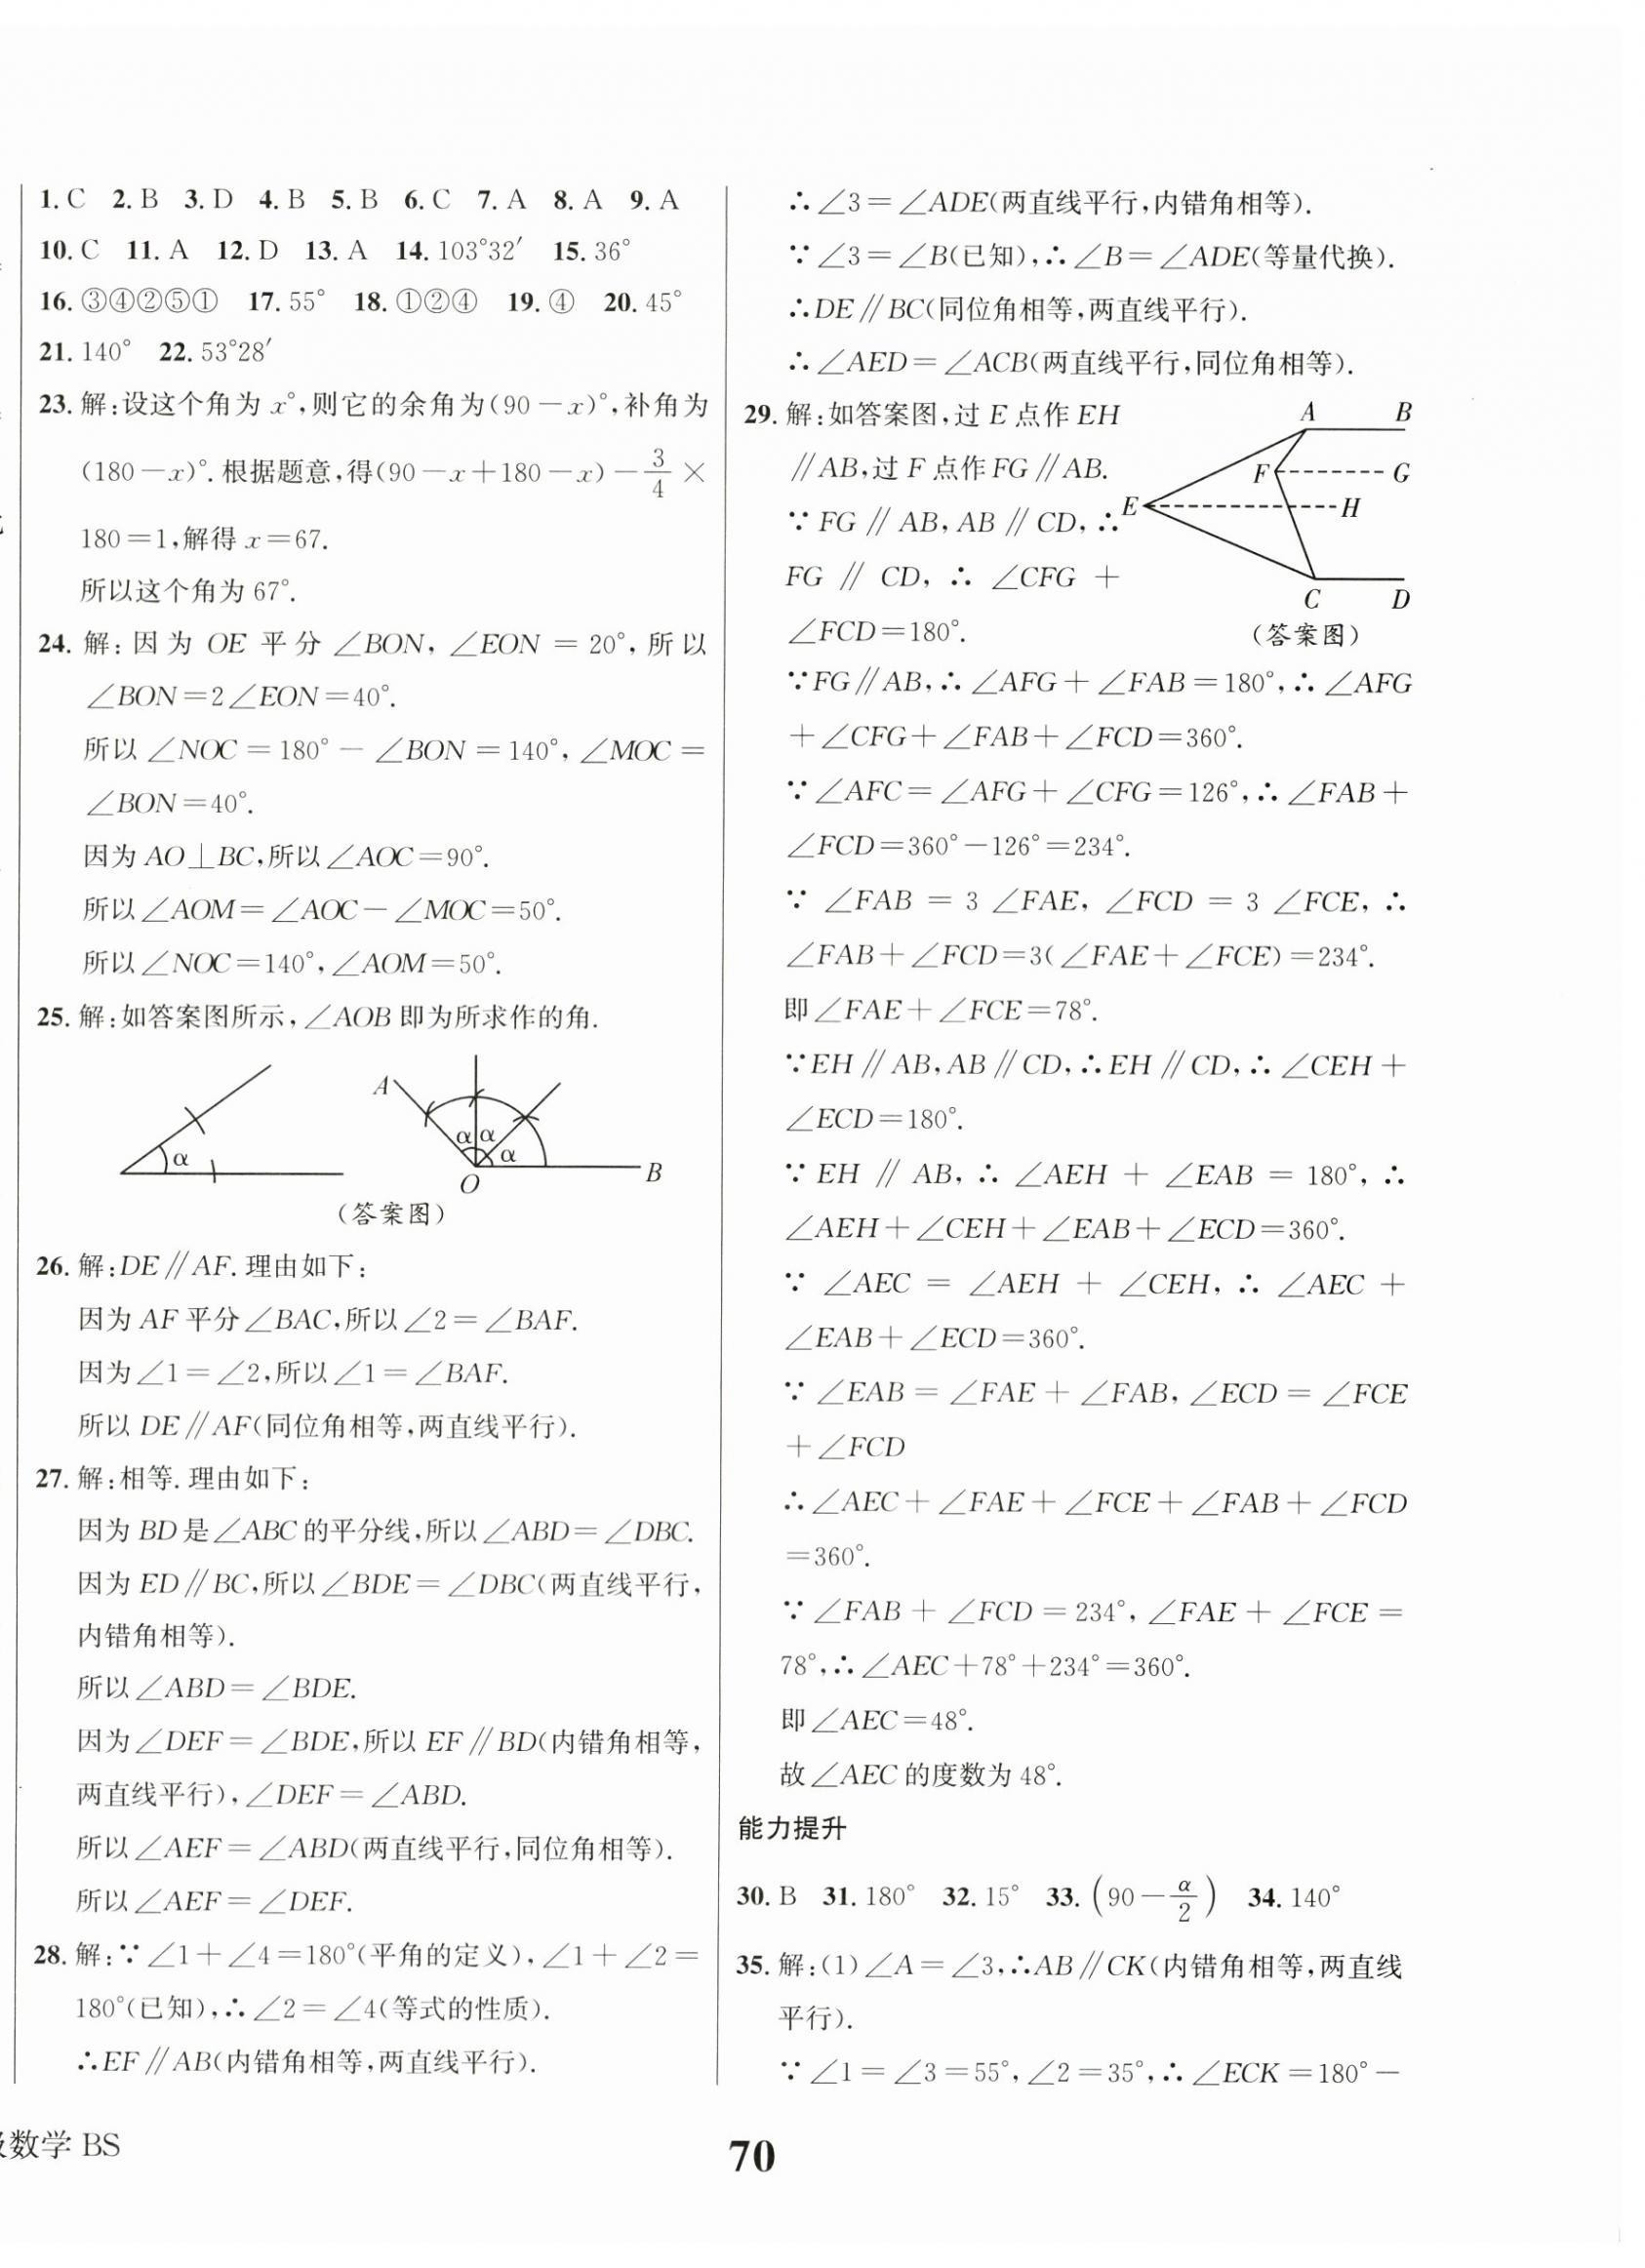 1. C 2. B 3. D 4. B 5. B 6. C 7. A 8. A 9. A
10. C 11. A 12. D 13. A 14. 103°32′ 15. 36°
16. ③④②⑤① 17. 55° 18. ①②④ 19. ④ 20. 45°
21. 140° 22. 53°28′
23. 解:设这个角为 x°,则它的余角为(90－x)°,补角为
(180－x)°. 根据题意,得(90－x＋180－x)－3/4×
180＝1,解得 x＝67.
所以这个角为 67°.
24. 解:因为 OE 平分∠BON,∠EON＝20°,所以
∠BON＝2∠EON＝40°.
所以∠NOC＝180°－∠BON＝140°,∠MOC＝
∠BON＝40°.
因为 AO⊥BC,所以∠AOC＝90°.
所以∠AOM＝∠AOC－∠MOC＝50°.
所以∠NOC＝140°,∠AOM＝50°.
25. 解:如答案图所示,∠AOB 即为所求作的角.
α
A α α α O B
(答案图)
26. 解:DE∥AF. 理由如下:
因为 AF 平分∠BAC,所以∠2＝∠BAF.
因为∠1＝∠2,所以∠1＝∠BAF.
所以 DE∥AF(同位角相等,两直线平行).
27. 解:相等. 理由如下:
因为 BD 是∠ABC 的平分线,所以∠ABD＝∠DBC.
因为 ED∥BC,所以∠BDE＝∠DBC(两直线平行,
内错角相等).
所以∠ABD＝∠BDE.
因为∠DEF＝∠BDE,所以 EF∥BD(内错角相等,
两直线平行),∠DEF＝∠ABD.
所以∠AEF＝∠ABD(两直线平行,同位角相等).
所以∠AEF＝∠DEF.
28. 解:∵∠1＋∠4＝180°(平角的定义),∠1＋∠2＝
180°(已知),∴∠2＝∠4(等式的性质).
∴EF∥AB(内错角相等,两直线平行).
∴∠3＝∠ADE(两直线平行,内错角相等).
∵∠3＝∠B(已知),∴∠B＝∠ADE(等量代换).
∴DE∥BC(同位角相等,两直线平行).
∴∠AED＝∠ACB(两直线平行,同位角相等).
29. 解:如答案图,过 E 点作 EH
∥AB,过 F 点作 FG∥AB.
∵FG∥AB,AB∥CD,∴
FG∥CD,∴∠CFG＋
∠FCD＝180°.
A B
F G
E H
C D
(答案图)
∵FG∥AB,∴∠AFG＋∠FAB＝180°,∴∠AFG
＋∠CFG＋∠FAB＋∠FCD＝360°.
∵∠AFC＝∠AFG＋∠CFG＝126°,∴∠FAB＋
∠FCD＝360°－126°＝234°.
∵∠FAB＝3∠FAE,∠FCD＝3∠FCE,∴
∠FAB＋∠FCD＝3(∠FAE＋∠FCE)＝234°.
即∠FAE＋∠FCE＝78°.
∵EH∥AB,AB∥CD,∴EH∥CD,∴∠CEH＋
∠ECD＝180°.
∵EH∥AB,∴∠AEH＋∠EAB＝180°,∴
∠AEH＋∠CEH＋∠EAB＋∠ECD＝360°.
∵∠AEC＝∠AEH＋∠CEH,∴∠AEC＋
∠EAB＋∠ECD＝360°.
∵∠EAB＝∠FAE＋∠FAB,∠ECD＝∠FCE
＋∠FCD
∴∠AEC＋∠FAE＋∠FCE＋∠FAB＋∠FCD
＝360°.
∵∠FAB＋∠FCD＝234°,∠FAE＋∠FCE＝
78°,∴∠AEC＋78°＋234°＝360°.
即∠AEC＝48°.
故∠AEC 的度数为 48°.
能力提升
30. B 31. 180° 32. 15° 33. (90－α/2) 34. 140°
35. 解:(1)∠A＝∠3,∴AB∥CK(内错角相等,两直线
平行).
∵∠1＝∠3＝55°,∠2＝35°,∴∠ECK＝180°－
数学 BS
70